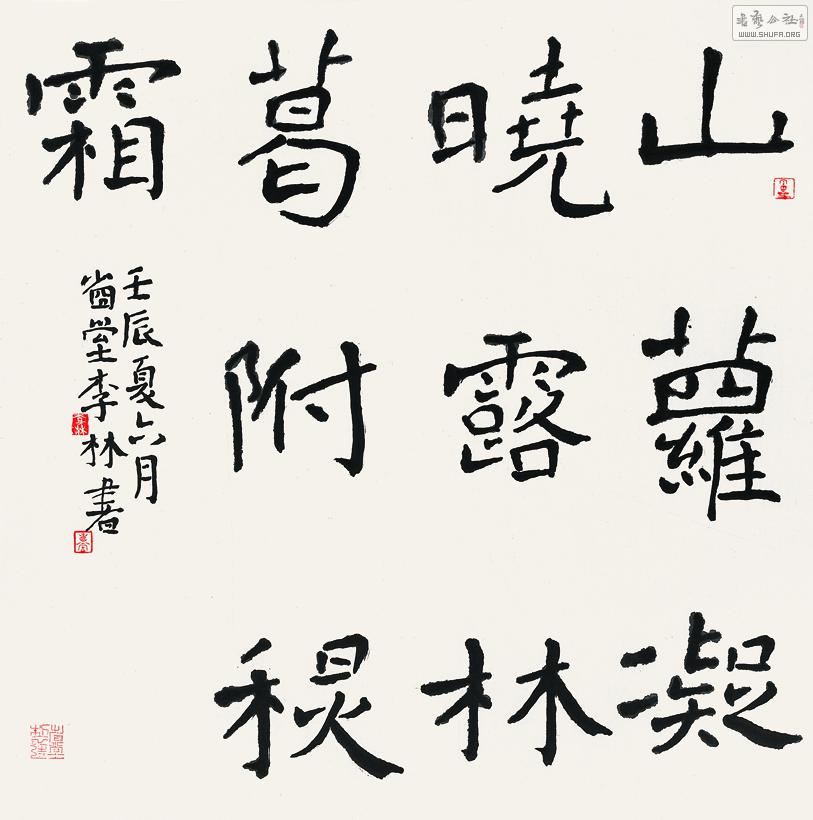 山蘿凝
曉露林
葛附秋
霜
壬辰夏六月
李林書
書藝公社
WWW.SHUFA.ORG